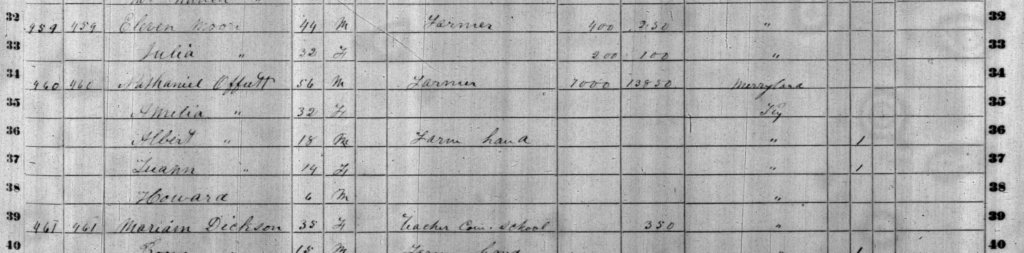 32 959 959 Moore 44 M Farmer 400 250 " 32
33 Julia " 32 F 200 100 " 33
34 460 460 Nathaniel Offutt 56 M Farmer 7000 13850 Merryland 34
35 Amelia " 32 F Ky 35
36 Albert " 18 M Farm hand " 1 36
37 Luann " 14 F " 1 37
38 Howard 6 M " 38
39 461 461 Mariam Dickson 35 F Teacher Com. School 350 " 39
40 18 M Farm hand 1 40